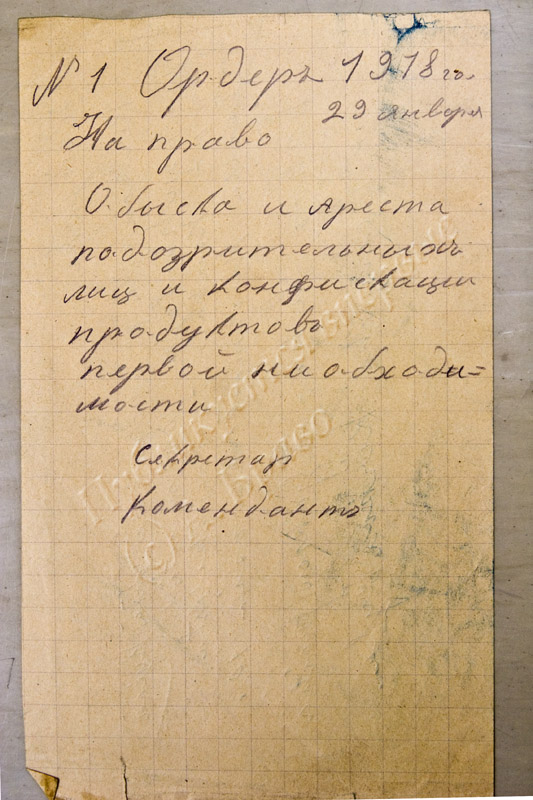 № 1 Ордеръ 1918 го.
29 января
На право
Обыска и ареста
подозрительныхъ
лиц и конфискации
продуктовъ
первой ниобходи=
мости
Секретар
Комендантъ
Публикуется впервые
©